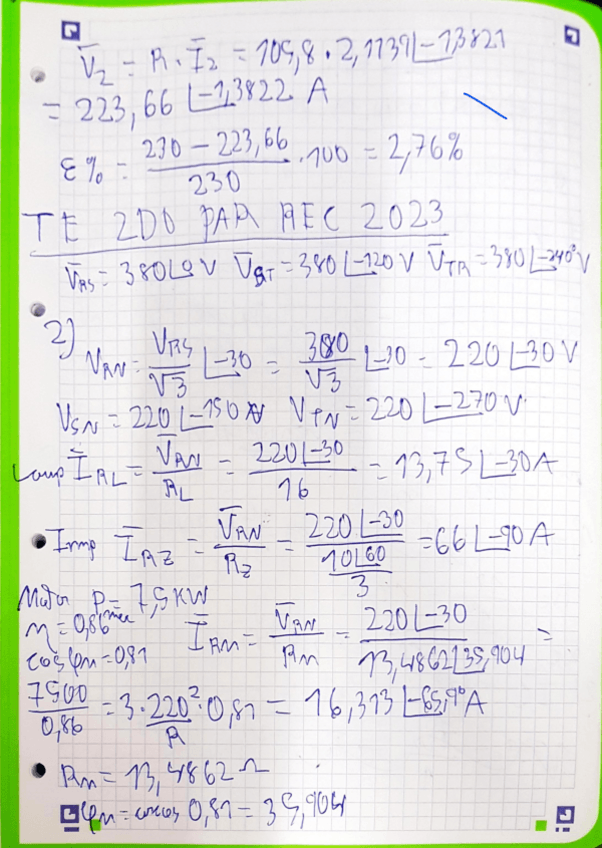 V̄₂ = R · Ī₂ = 105,8 · 2,1139 ∠-1,3821
= 223,66 ∠-1,3822 A
ε% = (230 - 223,66)/230 · 100 = 2,76%
TE 2D0 PAR REC 2023
V̄RS = 380∠0 V V̄ST = 380 ∠-120 V V̄TR = 380 ∠-240° V
2)
VRN = VRS/√3 ∠-30 = 380/√3 ∠-30 = 220 ∠-30 V
VSN = 220 ∠-150 V VTN = 220 ∠-270 V
ĪRL = V̄RN/RL = 220∠-30/16 = 13,75 ∠-30 A
• Imp ĪRZ = V̄RN/RZ = 220∠-30/(10∠60/3) = 66 ∠-90 A
Motor P = 7,5 KW
η = 0,86
cos φm = 0,81
ĪRM = V̄RN/RM = 220 ∠-30/13,4862∠35,904 =
7500/0,86 = 3 · 220²/R · 0,81 = 16,313 ∠-65,9° A
• Rm = 13,4862 Ω
φm = arcos 0,81 = 35,904